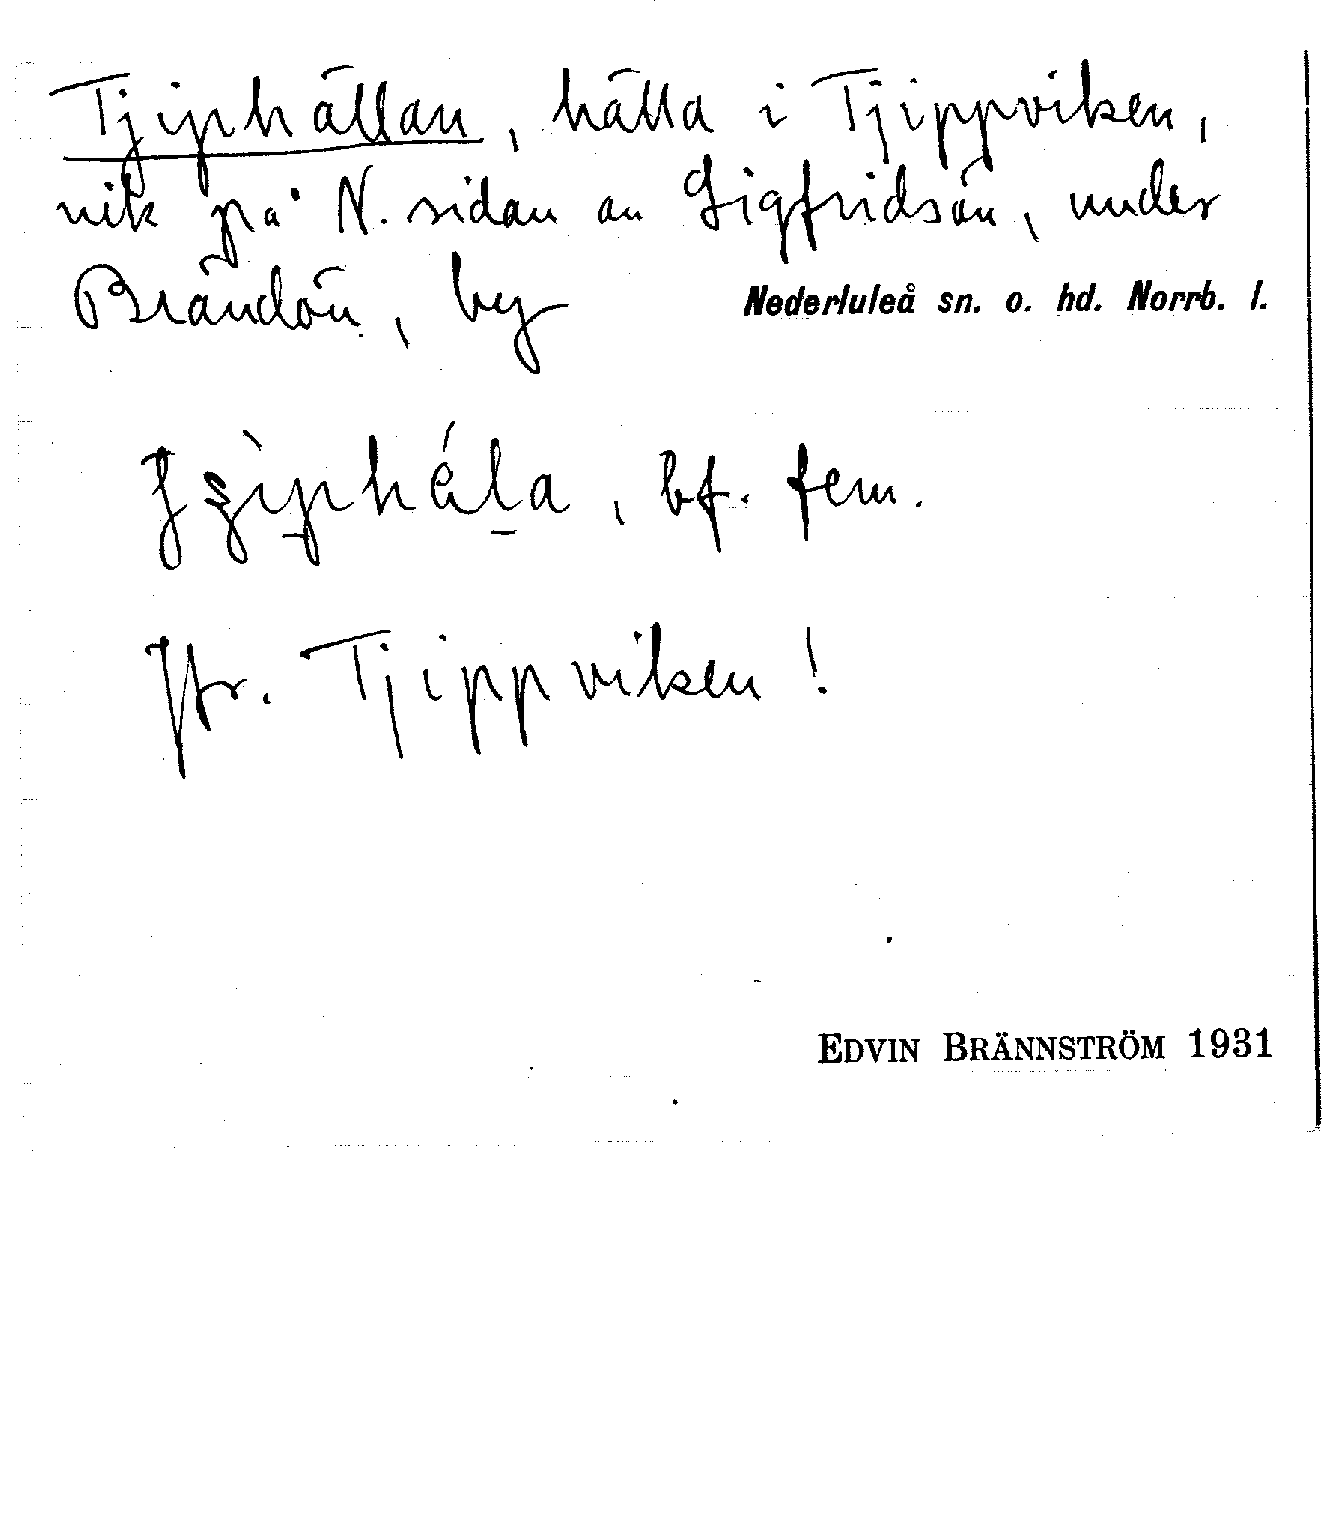 Tjiphällan, hälla i Tjippviken,
vik på N. sidan av Sigfridsön, under
Brändön, by Nederluleå sn. o. hd. Norrb. l.
bf. fem.
Jfr. Tjippviken!
EDVIN BRÄNNSTRÖM 1931